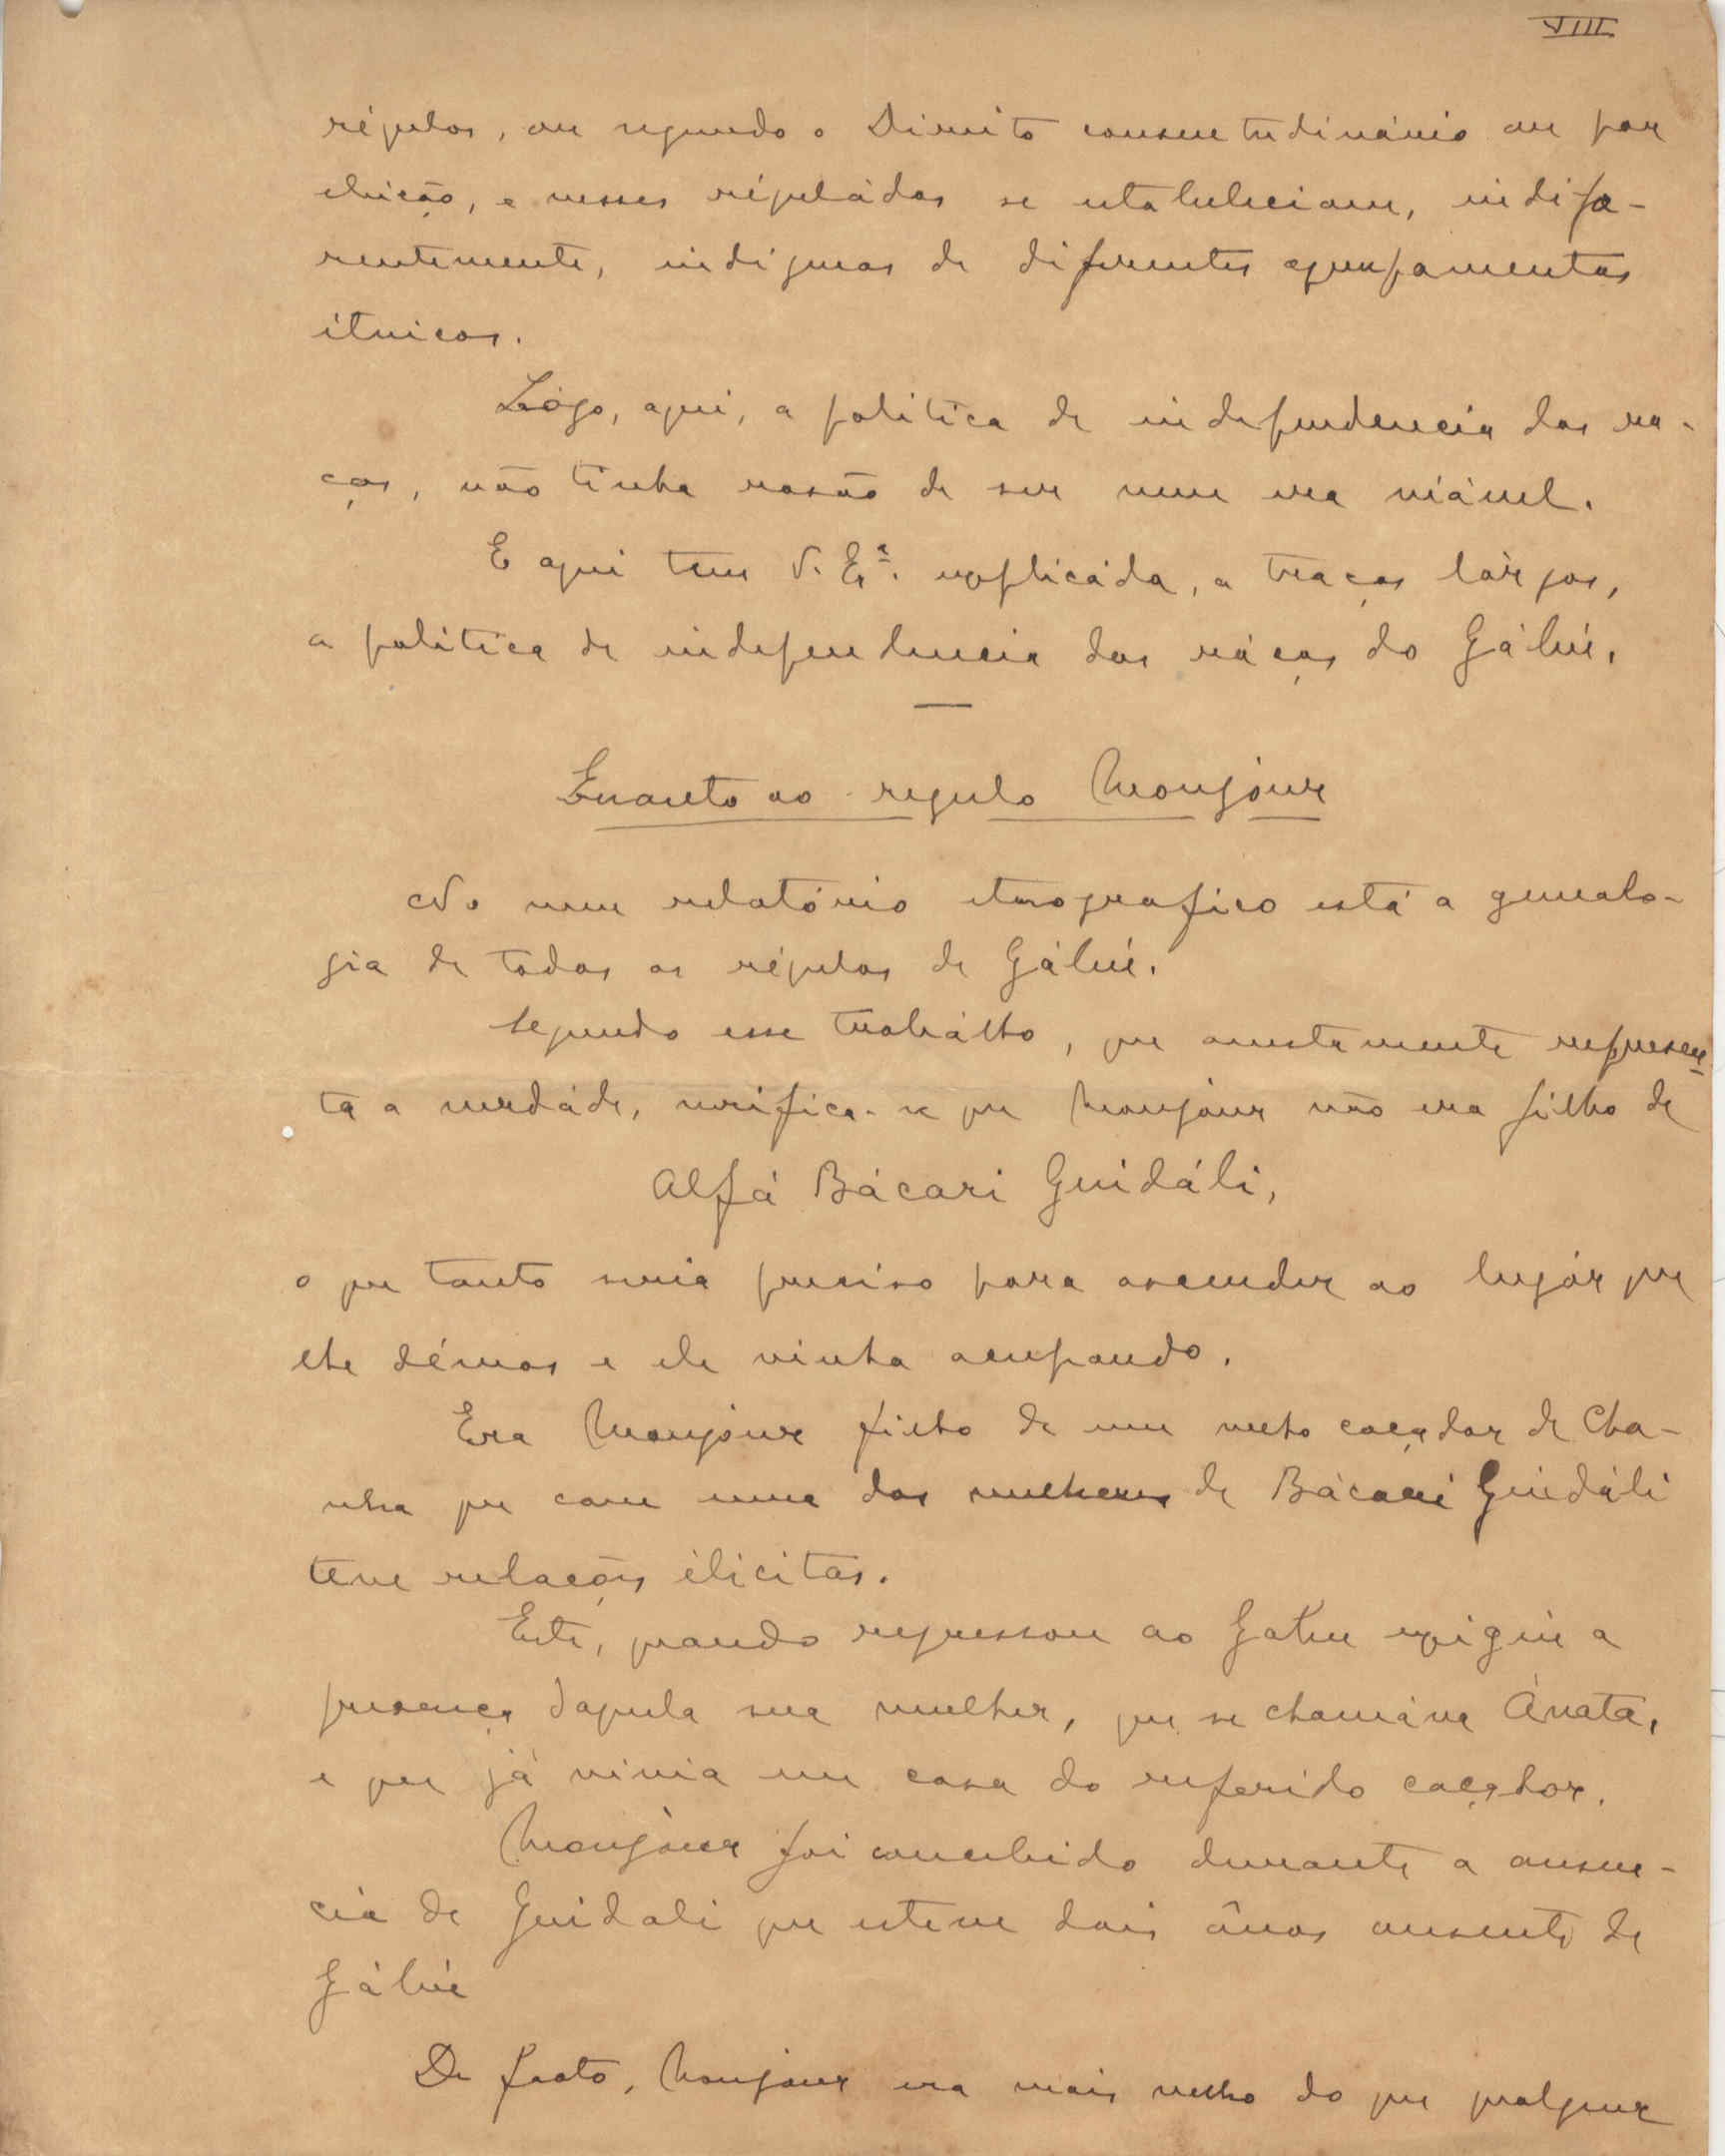 VIII
régulos, ou segundo o Direito consuetudinário ou por
eleição, e nesses réguládos se estabeleciam, indife-
rentemente, indigenas de diferentes agrupamentos
étnicos.
Lógo, aqui, a politica de independencia das ra-
ças, não tinha rasão de ser nem era viável.
E aqui tem V. Exª. explicáda, a traços lárgos,
a politica de independencia das ráças do Gábú.
Quanto ao regulo Monjóur
No meu relatório etnografico está a genealo-
gia de todos os régulos de Gábú.
Segundo esse trabálho, que
represen-
ta a verdáde, verifica-se que Monjóur não era filho de
Alfá Bácari Guidáli,
o que tanto seria preciso para ascender ao lugár que
lhe démos e ele vinha ocupando.
Era Monjóur filho de um velho caçador de Cha-
nha que com uma das mulheres de Bácari Guidáli
teve relações ilicitas.
Este, quando regressou ao Gabu exigiu a
presença daquela sua mulher, que se chamáva Ánata,
e que já vivia em casa do referido caçador.
Monjóur foi concebido durante a ausen-
cia de Guidali que esteve dois ânos ausente de
Gábú
De facto, Monjour era mais velho do que qualquer